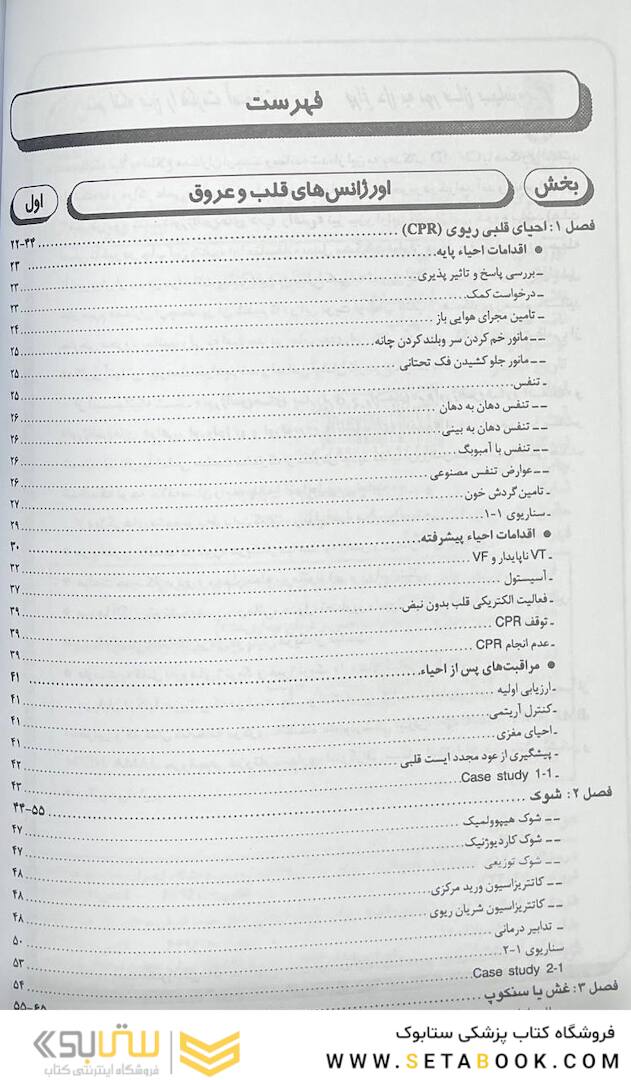 فهرست
بخش اورژانس‌های قلب و عروق اول
فصل ۱: احیای قلبی ریوی (CPR) ۲۲-۴۴
● اقدامات احیاء پایه ۲۳
ـ بررسی پاسخ و تاثیر پذیری ۲۳
ـ درخواست کمک ۲۳
ـ تامین مجرای هوایی باز ۲۴
ـ ـ مانور خم کردن سر و بلند کردن چانه ۲۵
ـ ـ مانور جلو کشیدن فک تحتانی ۲۵
ـ تنفس ۲۵
ـ ـ تنفس دهان به دهان ۲۶
ـ ـ تنفس دهان به بینی ۲۶
ـ ـ تنفس با آمبوبگ ۲۶
ـ ـ عوارض تنفس مصنوعی ۲۶
ـ تامین گردش خون ۲۷
ـ سناریوی ۱-۱ ۲۹
● اقدامات احیاء پیشرفته ۳۰
ـ VT ناپایدار و VF ۳۲
ـ آسیستول ۳۷
ـ فعالیت الکتریکی قلب بدون نبض ۳۹
ـ توقف CPR ۳۹
ـ عدم انجام CPR ۳۹
● مراقبت‌های پس از احیاء ۴۱
ـ ارزیابی اولیه ۴۱
ـ کنترل آریتمی ۴۱
ـ احیای مغزی ۴۱
ـ پیشگیری از عود مجدد ایست قلبی ۴۲
ـ Case study 1-1 ۴۳
فصل ۲: شوک ۴۴-۵۵
ـ ـ شوک هیپوولمیک ۴۷
ـ ـ شوک کاردیوژنیک ۴۷
ـ ـ شوک توزیعی ۴۸
ـ ـ کاتتریزاسیون ورید مرکزی ۴۸
ـ ـ کاتتریزاسیون شریان ریوی ۴۸
ـ تدابیر درمانی ۵۰
سناریوی ۱-۲ ۵۳
Case study 2-1 ۵۴
فصل ۳: غش یا سنکوپ ۵۵-۶۵
فروشگاه کتاب پزشکی ستابوک
WWW.SETABOOK.COM
ستابوک
فروشگاه اینترنتی کتاب